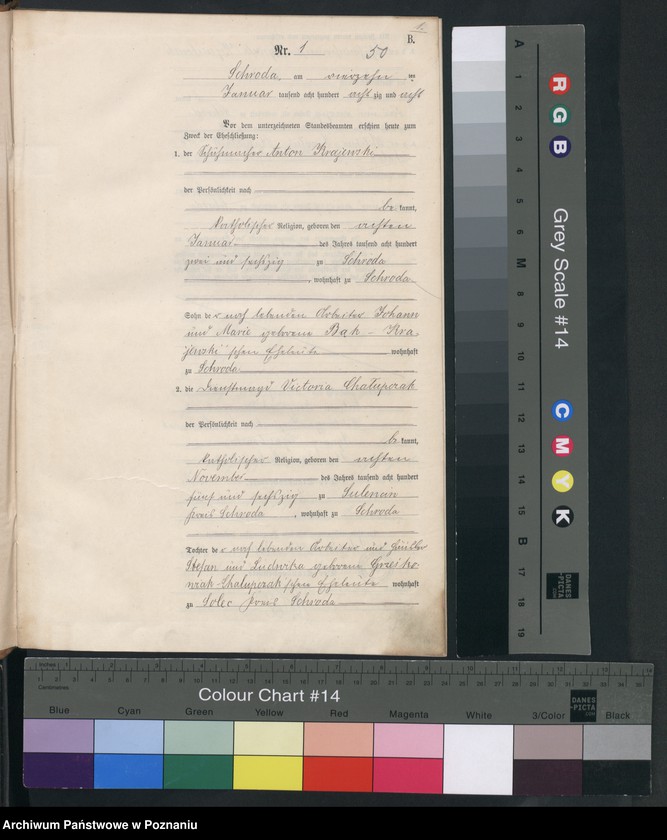 1.
B.
Nr. 1 50
Schroda, am vierzehn ten
Januar tausend acht hundert acht zig und acht
Vor dem unterzeichneten Standesbeamten erschien heute zum
Zweck der Eheschließung:
1. der Schuhmacher Anton Krajewski
der Persönlichkeit nach
be kannt,
katholischer Religion, geboren den achten
Januar des Jahres tausend acht hundert
zwei und sechszig zu Schroda
, wohnhaft zu Schroda
Sohn der noch lebenden Arbeiter Johann
und Marie geborene Bąk - Kra
jewski'schen Eheleute wohnhaft
zu Schroda
2. die Dienstmagd Victoria Chalupczak
der Persönlichkeit nach
be kannt,
katholischer Religion, geboren den achten
November des Jahres tausend acht hundert
fünf und sechszig zu
Kreis Schroda, wohnhaft zu Schroda
Tochter der noch lebenden Arbeiter und Häusler
Stefan und Ludwika geborene
Chalupczak'schen Eheleute wohnhaft
zu Solec Kreis Schroda
A 1 2 3 4 5 6 M 8 9 10 11 12 13 14 15 B 17 18 19
R G B
Grey Scale #14
C M Y K
DANES
-PICTA
.COM
Inches
Centimetres
Colour Chart #14
DANES
-PICTA
.COM
Blue Cyan Green Yellow Red Magenta White 3/Color Black
Archiwum Państwowe w Poznaniu